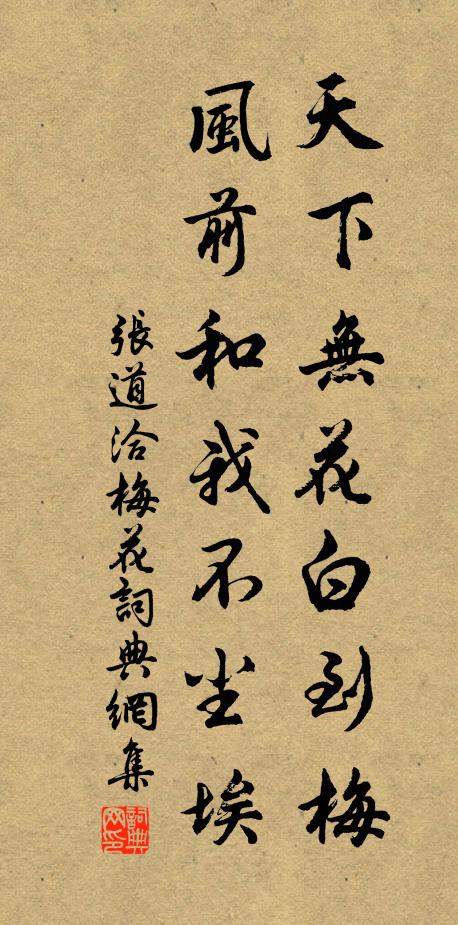 天下無花白到梅
風前和我不尘埃
張道洽梅花詞典網集
詞典
网印